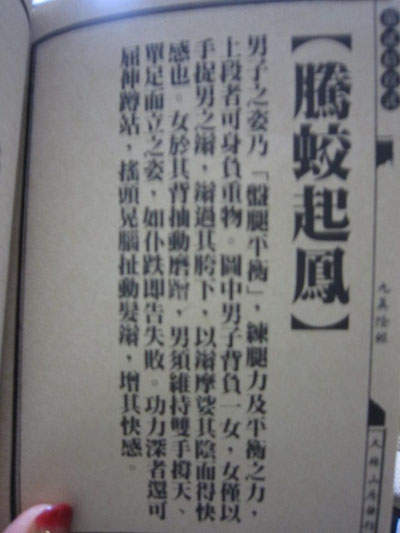 【騰蛟起鳳】
男子之姿乃「盤腿平衡」，練腿力及平衡之力，
上段者可身負重物。圖中男子背負一女，女僅以
手捉男之辮，辮過其胯下，以辮摩娑其陰而得快
感也。女於其背抽動磨蹭，男須維持雙手擭天、
單足而立之姿，如仆跌即告失敗。功力深者還可
屈伸蹲站，搖頭晃腦扯動髮辮，增其快感。
九真陰經